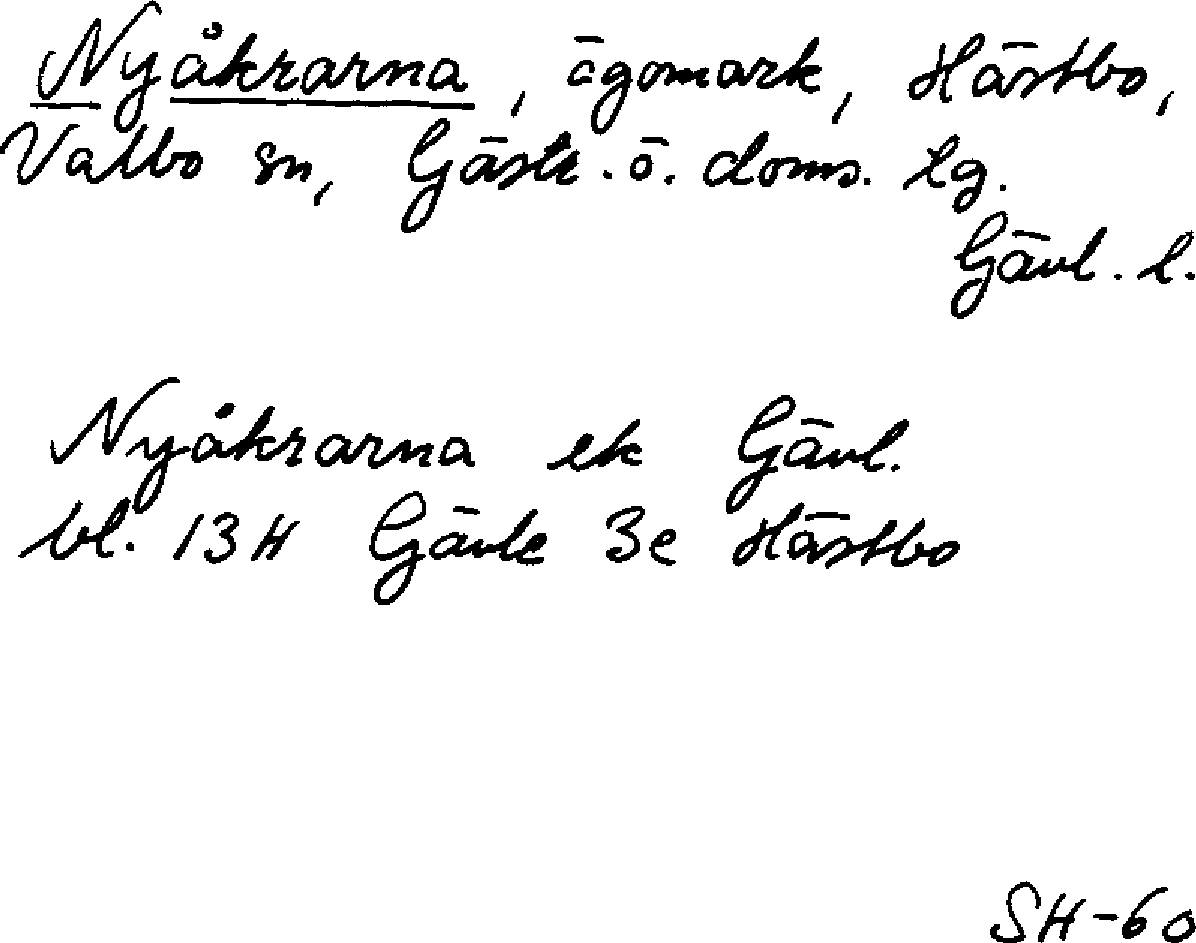 Nyåkrarna, ägomark, Hästbo,
Valbo sn, Gästr. ö. doms. tg.
Gävl. l.
Nyåkrarna ek Gävl.
bl. 13H Gävle 3e Hästbo
SH-60